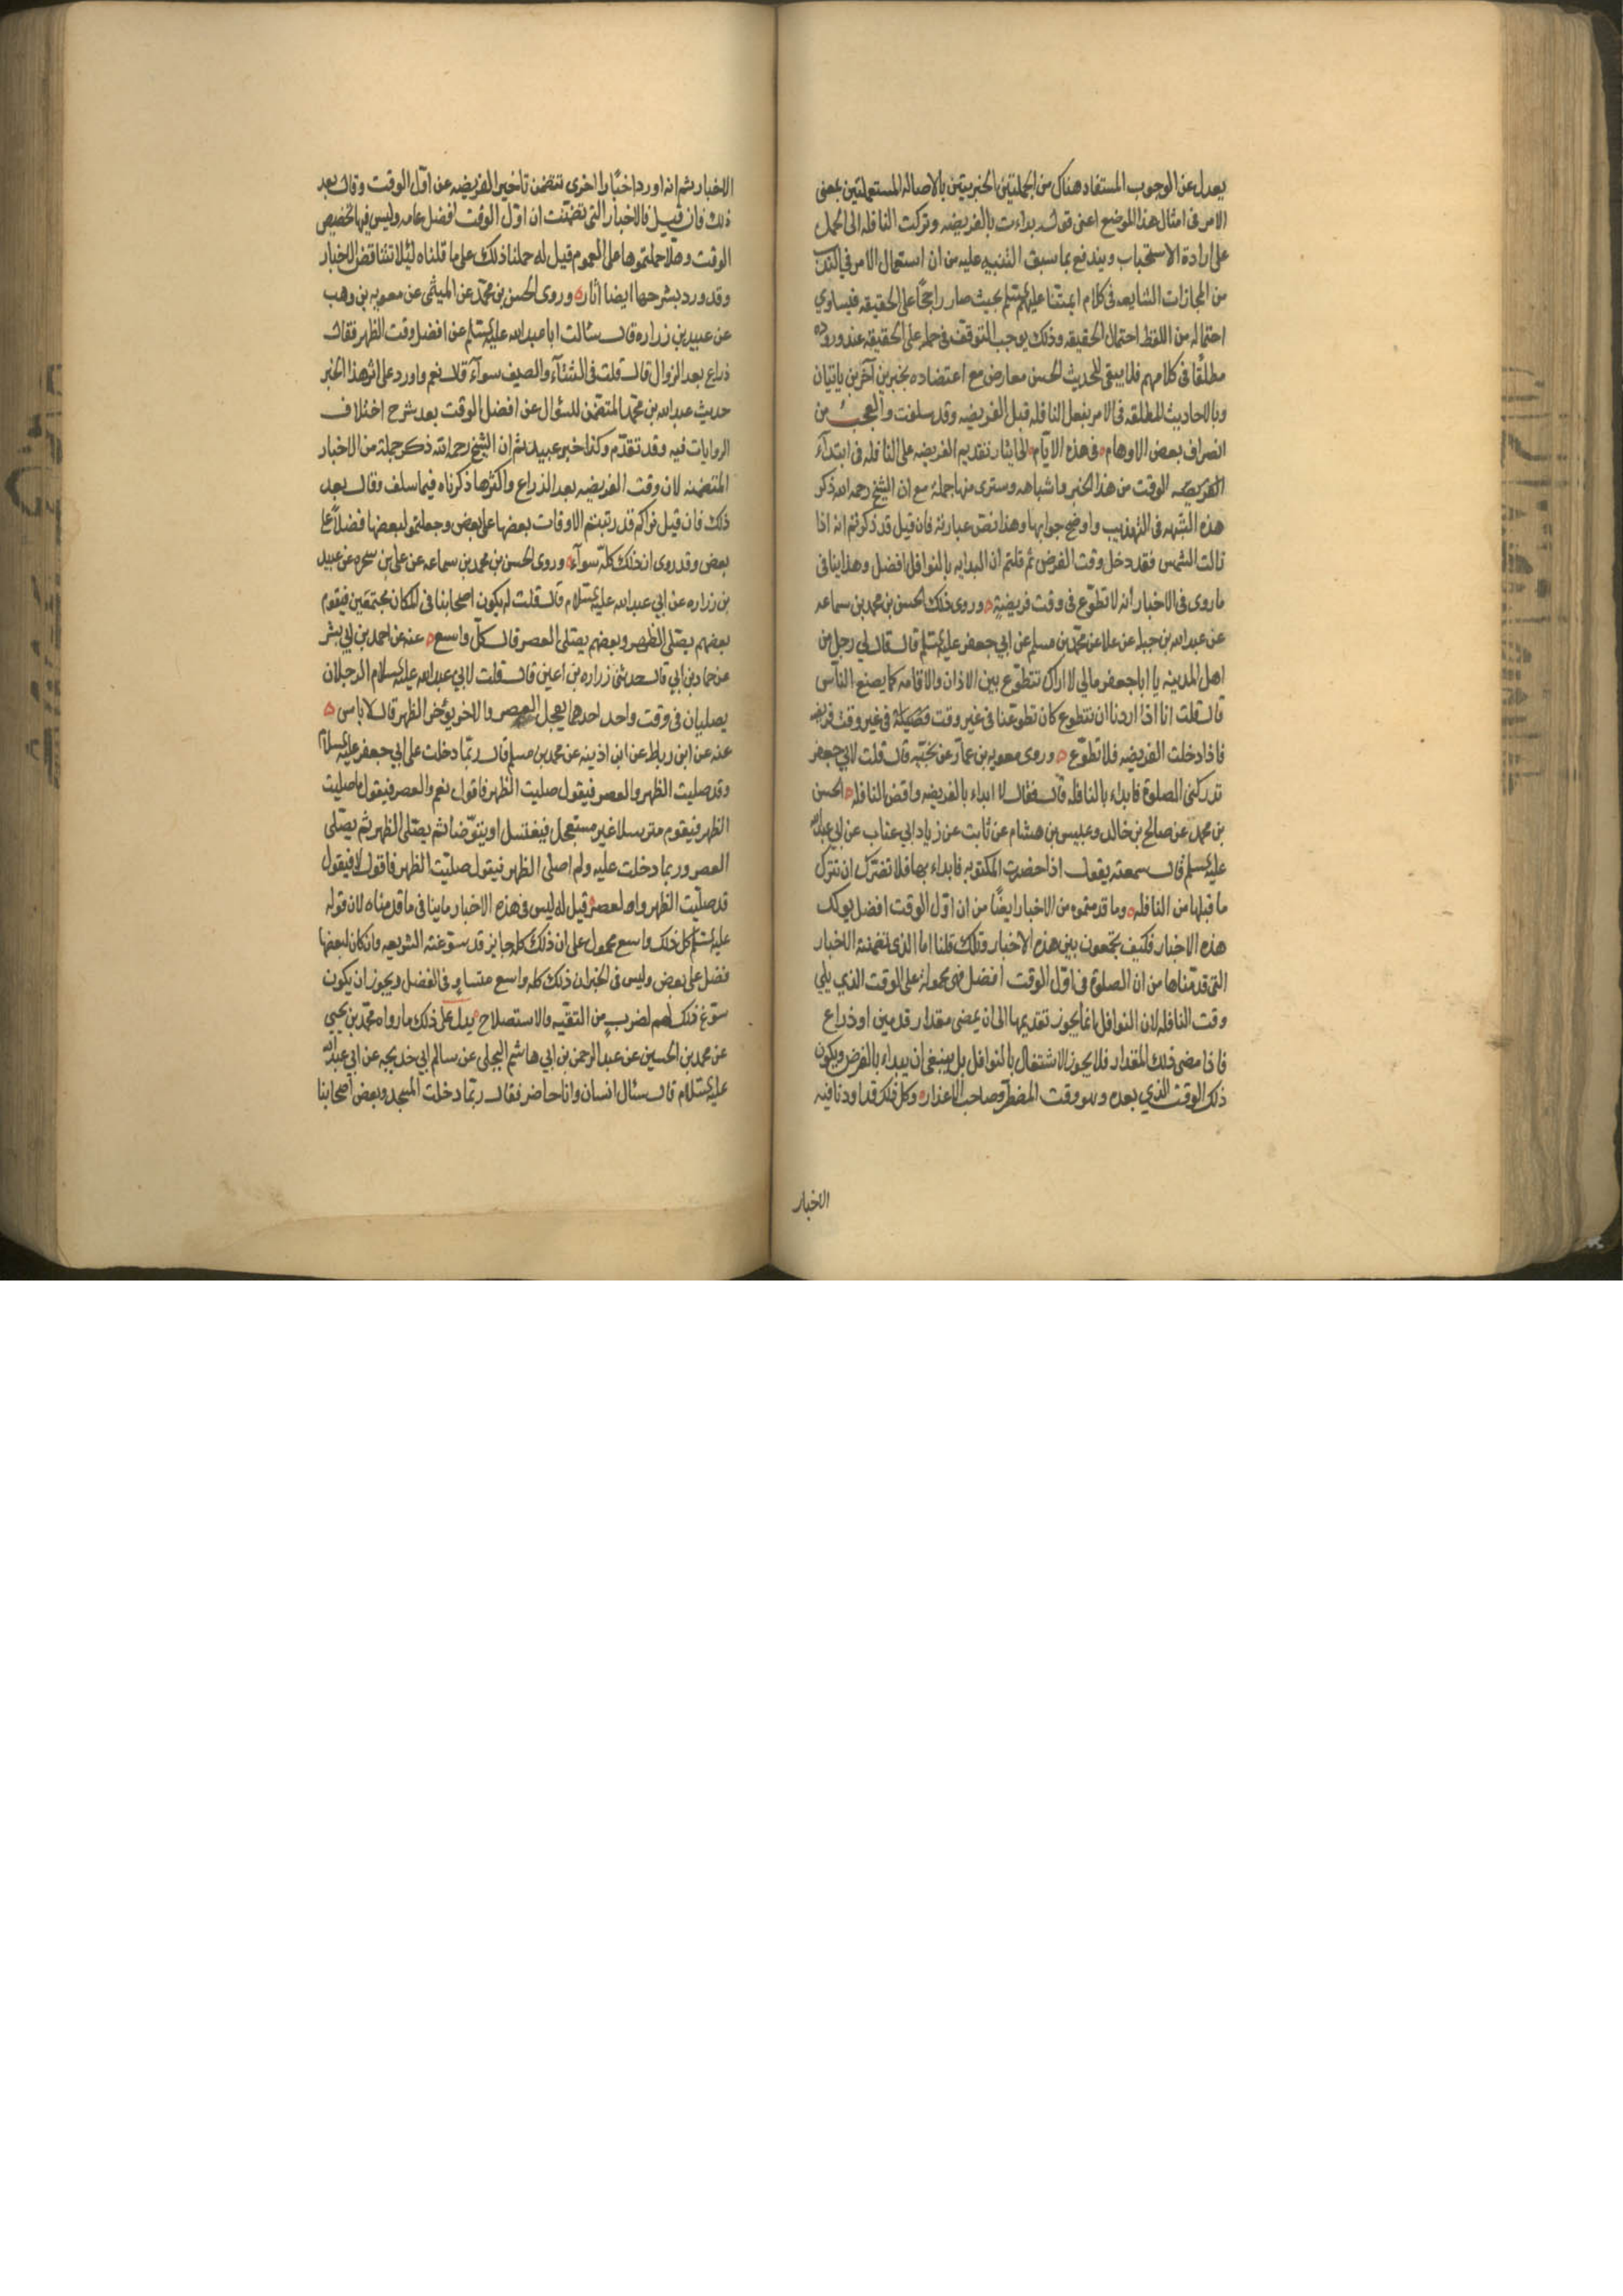 يعدل عن الوجوب المستفاد هناك من الجملتين الخبريتين بالاصالة المستعملتين بمعنى
الامر فى امثال هذا الموضع اعنى قوله بداءت بالفريضه وتركت النافله الى الحمل
على ارادة الاستحباب ويندفع بما سبق التنبيه عليه من ان استعمال الامر فى الندب
من المجازات الشايعه فى كلام ايمتنا عليهم السلم بحيث صار راجحًا على الحقيقه فيساوي
احتماله من اللفظ احتمال الحقيقه وذلك يوجب التوقف فى حمله على الحقيقه عند وروده
مطلقًا فى كلامهم فلا يبقى للحديث الحسن معارض مع اعتضاده بخبرين آخرين ياتيان
وبالاحاديث المطلقه فى الامر بفعل النافله قبل الفريضه وقد سلفت والعجب من
انصراف بعض الاوهام فى هذه الايام الى ايثار تقديم الفريضه على النافله فى ابتداء
الفريضه الوقت من هذا الخبر واشباهه وسترى منها جملة مع ان الشيخ رحمه الله ذكر
هذه الشبهه فى التهذيب واوضح جوابها وهذا نص عبارته فان قيل قد ذكرتم انه اذا
زالت الشمس فقد دخل وقت الفرض ثم قلتم ان البدايه بالنوافل افضل وهذا ينافى
ما روى فى الاخبار انه لا تطوع فى وقت فريضة وروى ذلك الحسن بن محمد بن سماعه
عن عبدالله بن جبله عن علا عن محمد بن مسلم عن ابي جعفر عليه السلم قال قال لي رجل من
اهل المدينه يا ابا جعفر مالي لا اراك تتطوع بين الاذان والاقامه كما يصنع الناس
قال قلت انا اذا اردنا ان نتطوع كان تطوعنا فى غير وقت فريضة
فاذا دخلت الفريضه فلا تطوع وروى معويه بن عمار عن نجيه قال قلت لابي جعفر
تدركنى الصلوة فابداء بالنافله قال فقال لا ابداء بالفريضه واقض النافله الحسن
بن محمد عن صالح بن خالد وعبيس بن هشام عن ثابت عن زياد ابى عتاب عن ابى عبدالله
عليه السلم قال سمعته يقول اذا حضرت المكتوبه فابداء بها فلا تضرك ان تترك
ما قبلها من النافله وما قدمتموه من الاخبار ايضًا من ان اول الوقت افضل يوكد
هذه الاخبار فكيف تجمعون بين هذه الاخبار وتلك قلنا اما الذى تضمنته الاخبار
التى قدمناها من ان الصلوة فى اول الوقت افضل فهى محموله على الوقت الذي يلي
وقت النافله لان النوافل انما يجوز تقديمها الى ان يمضى مقدار قدمين او ذراع
فاذا مضى ذلك المقدار فلا يجوز الاشتغال بالنوافل بل ينبغى ان يبداء بالفرض ويكون
ذلك الوقت الذي بعده وهو وقت المضطر وصاحب الاعذار وكل ذلك قد اوردنا فيه
الاخبار
الاخبار ثم انه اورد اخبارا اخرى تتضمن تاخير الفريضه عن اول الوقت وقال بعد
ذلك فان قيل فالاخبار التى تضمنت ان اول الوقت افضل عامه وليس فيها تخصيص
الوقت وهلا حملتموها على العموم قيل له حملنا ذلك على ما قلناه لئلا تتناقض الاخبار
وقد ورد بشرحها ايضا اثار وروى الحسن بن محمد عن الميثمى عن معويه بن وهب
عن عبيد بن زراره قال سئالت ابا عبدالله عليه السلم عن افضل وقت الظهر فقال
ذراع بعد الزوال قال قلت فى الشتآء والصيف سوآء قال نعم واورد على اثر هذا الخبر
حديث عبدالله بن محمد المتضمن للسؤال عن افضل الوقت بعد شرح اختلاف
الروايات فيه وقد تقدم وكذا خبر عبيد ثم ان الشيخ رحمه الله ذكر جملة من الاخبار
المتضمنه لان وقت الفريضه بعد الذراع واكثرها ذكرناه فيما سلف وقال بعد
ذلك فان قيل نراكم قد رتبتم الاوقات بعضها على بعض وجعلتم لبعضها فضلًا على
بعض وقد روى ان ذلك كله سوآء وروى الحسن بن محمد بن سماعه عن على بن شجره عن عبيد
بن زراره عن ابي عبدالله عليه السلام قال قلت له يكون اصحابنا فى المكان مجتمعين فيقوم
بعضهم يصلى الظهر وبعضهم يصلى العصر قال كل واسع عنه عن احمد بن ابي بشر
عن حماد بن ابي قال حدثنى زراره بن اعين قال قلت لابي عبدالله عليه السلام الرجلان
يصليان فى وقت واحد احدهما يعجل العصر والاخر يؤخر الظهر قال لا باس
عنه عن ابن رباط عن ابن اذينه عن محمد بن مسلم قال ربما دخلت على ابي جعفر عليه السلام
وقد صليت الظهر والعصر فيقول صليت الظهر فاقول نعم والعصر فيقول ما صليت
الظهر فيقوم مترسلا غير مستعجل فيغتسل او يتوضا ثم يصلى الظهر ثم يصلى
العصر وربما دخلت عليه ولم اصلى الظهر فيقول صليت الظهر فاقول لا فيقول
قد صليت الظهر والعصر قيل له ليس فى هذه الاخبار ما ينافى ما قدمناه لان قوله
عليه السلم كل ذلك واسع محمول على ان ذلك كله جايز قد سوغته الشريعه وان كان لبعضها
فضل على بعض وليس فى الخبر ان ذلك كله واسع متساو فى الفضل ويجوز ان يكون
سوغ ذلك لهم لضرب من التقيه والاستصلاح يدل على ذلك ما رواه محمد بن يحيى
عن محمد بن الحسين عن عبد الرحمن بن ابي هاشم البجلى عن سالم ابي خديجه عن ابي عبدالله
عليه السلام قال سئال انسان وانا حاضر فقال ربما دخلت المسجد وبعض اصحابنا